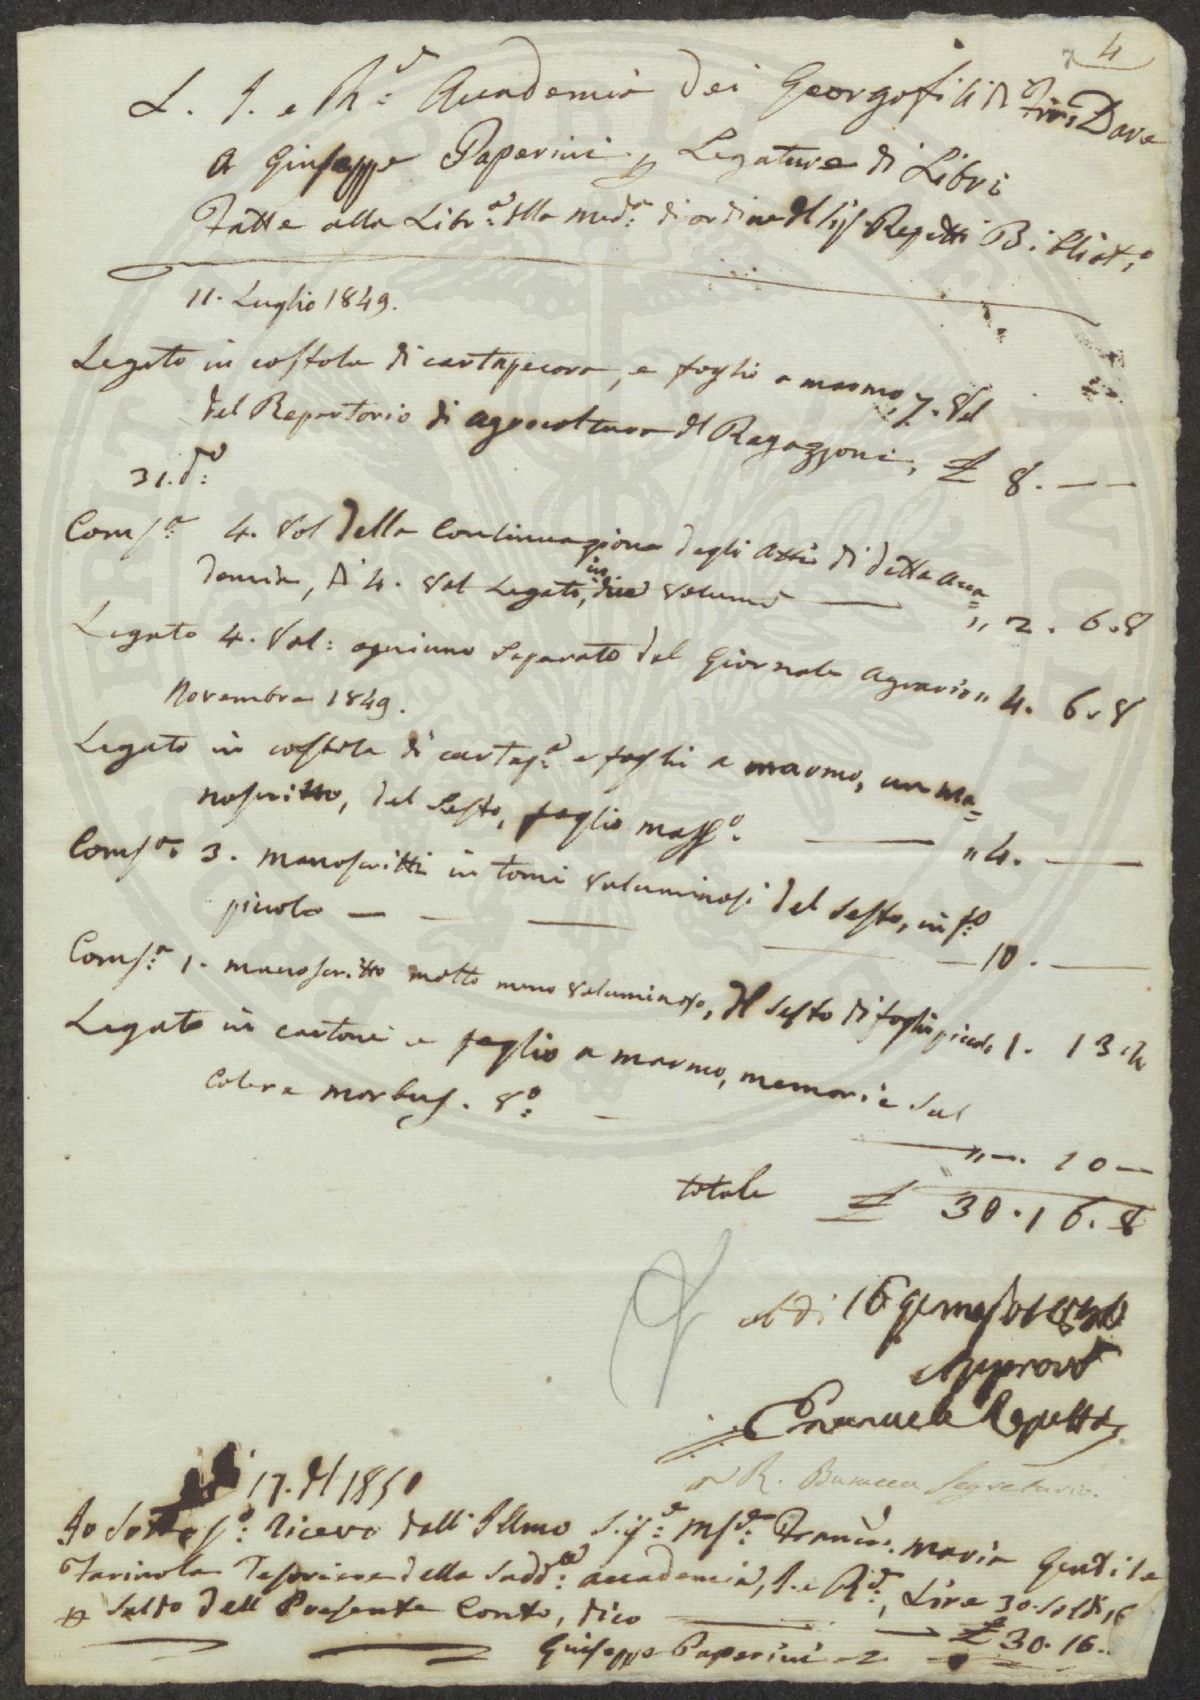 4
L. I. e R.ᵉ Accademia dei Georgofili di Dare
A Giuseppe Paperini p Legature di Libri
Fatte alla Libr.ª della med.ª di ordine del Sig. Repetti Bibliot.º
11. Luglio 1849.
Legato in costola di cartapecora, e foglio a marmo, 7. Vol
del Repertorio di agricoltura del Ragazzoni, £ 8. — —
31. d.º
Coms.ª 4. Vol della Continuazione degli Atti di detta Acca=
demia, di 4. Vol Legato, in due volumi — „ 2. 6. 8
Legato 4. Vol: ogniuno Separato del Giornale Agrario „ 4. 6. 8
Novembre 1849.
Legato in costola di cartap.ª e fogli a marmo, un Ma=
noscritto, del Sesto, foglio mass.º — „ 4. —
Coms.ª 3. manoscritti in tomi voluminosi del Sesto, in f.º
piccolo — — — — 10. —
Coms.ª 1. manoscritto molto meno voluminoso, del Sesto di foglio piccolo 1. 13. 4
Legato in cartone e foglio a marmo, memorie sul
Colera morbus. 8.º — — „ —. 10 —
totale £ 30. 16. 8
A dì 16
Approvo
Emanuele Repetti
R. Segretario.
17. d.º 1850
Io Sottos.º Ricevo dall' Illmo Sig.ᵉ M.ᵉ Franc.º Maria Gentile
Farinola Tesoriere della Sudd.ª accademia, I. e R.ᵉ, Lire 30. Soldi 16
p Saldo dell Presente Conto, dico — — £ 30. 16..
Giuseppe Paperini